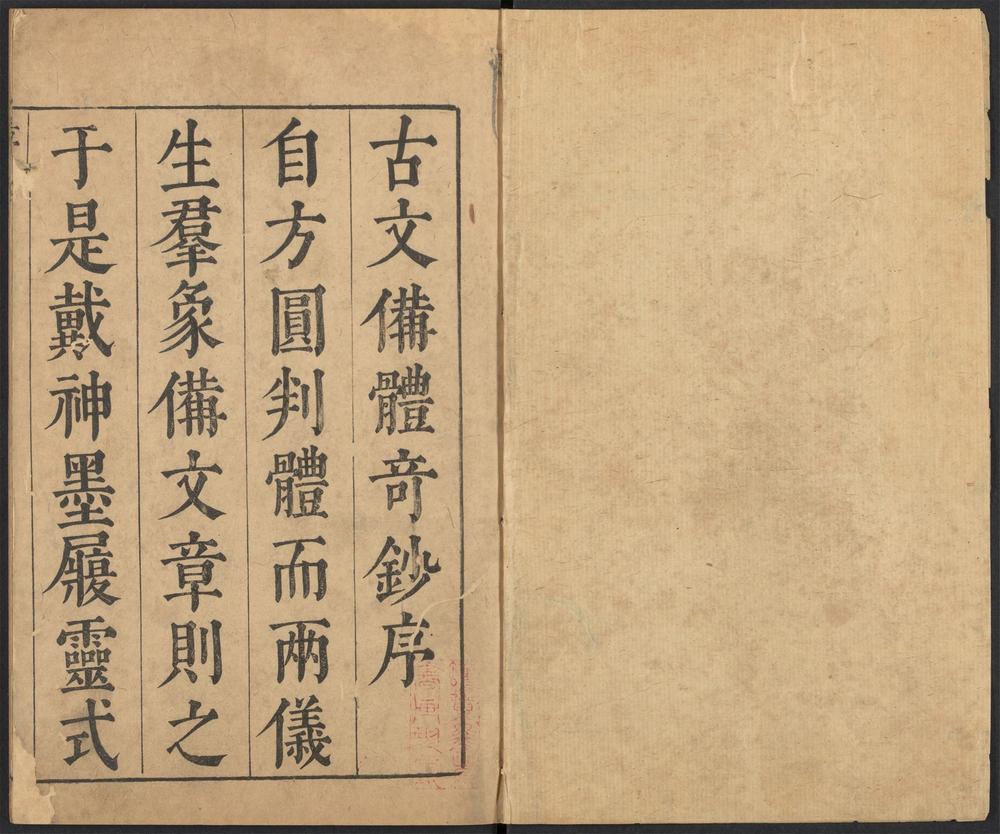 古文備體竒鈔序
自方圓判體而兩儀
生羣象備文章則之
于是戴神墨履靈式